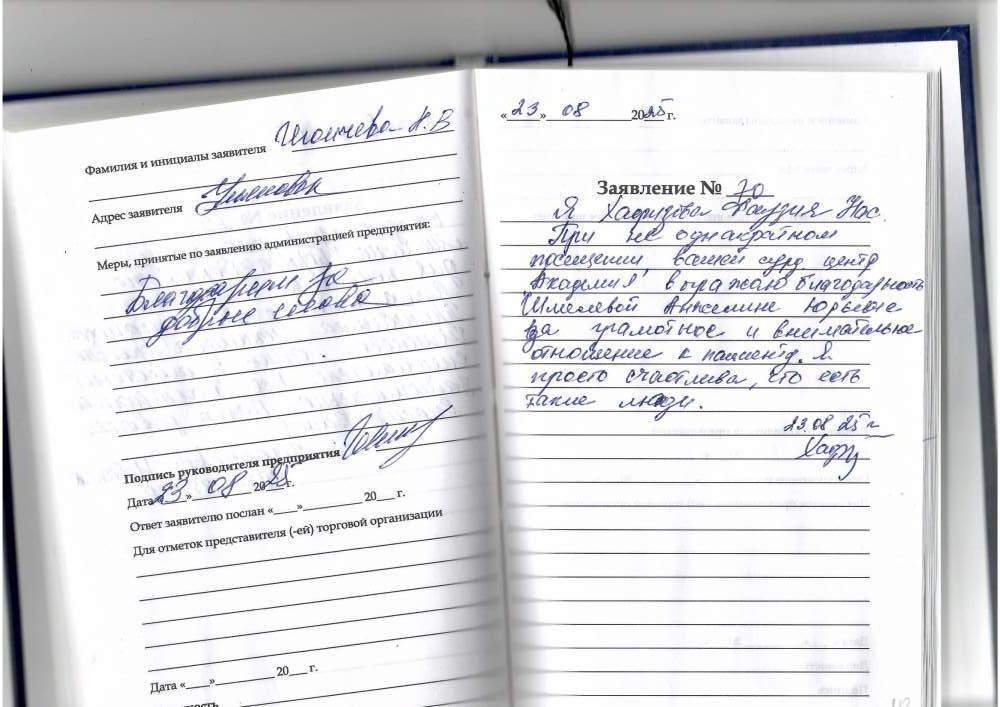 Фамилия и инициалы заявителя Н. В
Адрес заявителя Ульяновск
Меры, принятые по заявлению администрацией предприятия:
Благодарим за
добрые слова
Подпись руководителя предприятия
Дата «23» 08 2025 г.
Ответ заявителю послан «___»_________ 20___ г.
Для отметок представителя (-ей) торговой организации
Дата «___»_________ 20___ г.
«23» 08 2025 г.
Заявление № 70
Я Хафизова Наc.
При не однократном
посещении вашей сурд. центр
Академия, выражаю благодарность
Шмелевой Анжелине Юрьевне
за грамотное и внимательное
отношение к пациенту. Я
просто счастлива, что есть
такие люди.
23.08 25 г